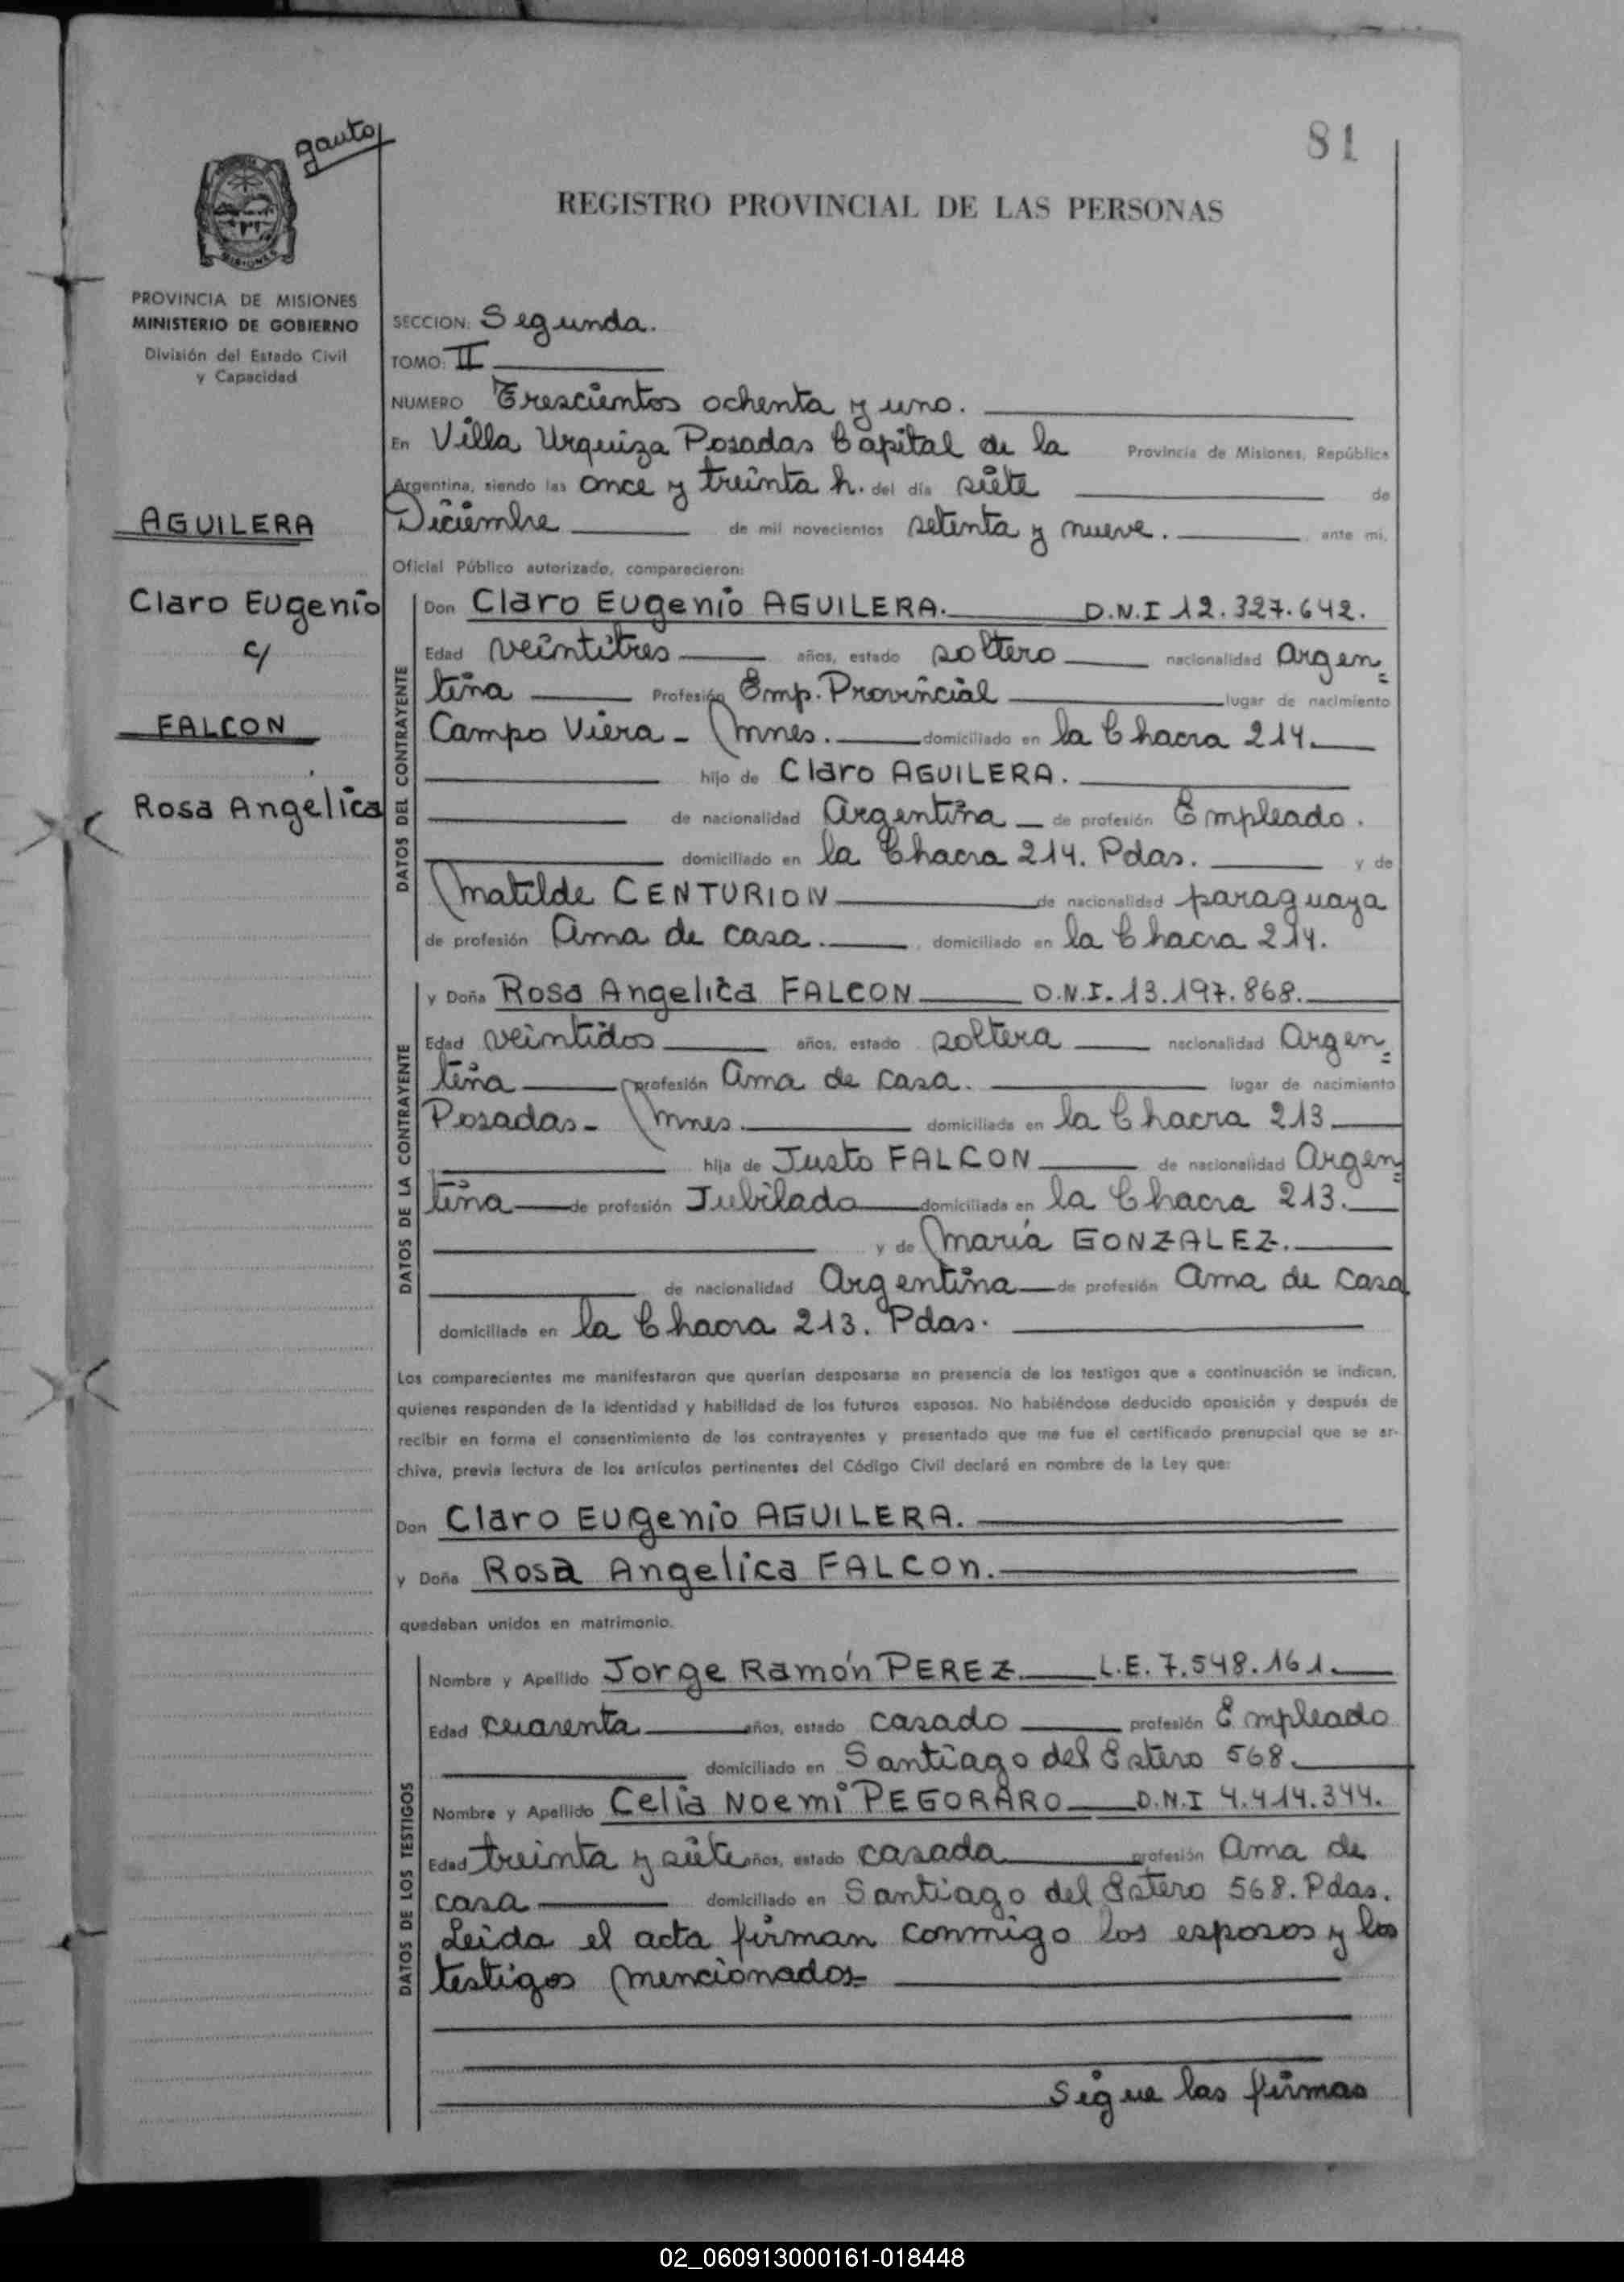 gauto
81
REGISTRO PROVINCIAL DE LAS PERSONAS
MISIONES
PROVINCIA DE MISIONES
MINISTERIO DE GOBIERNO
División del Estado Civil
y Capacidad
AGUILERA
Claro Eugenio
c/
FALCON
Rosa Angélica
SECCION: Segunda.
TOMO: II
NUMERO Trescientos ochenta y uno.
En Villa Urquiza Posadas Capital de la Provincia de Misiones, República
Argentina, siendo las once y treinta h. del día siete de
Diciembre de mil novecientos setenta y nueve. ante mi,
Oficial Público autorizado, comparecieron:
DATOS DEL CONTRAYENTE
Don Claro Eugenio AGUILERA. D.N.I 12.327.642.
Edad veintitres años, estado soltero nacionalidad Argen=
tina Profesión Emp. Provincial lugar de nacimiento
Campo Viera - Mnes. domiciliado en la Chacra 214.
hijo de Claro AGUILERA.
de nacionalidad Argentina de profesión Empleado.
domiciliado en la Chacra 214. Pdas. y de
Matilde CENTURION de nacionalidad paraguaya
de profesión Ama de casa. domiciliado en la Chacra 214.
DATOS DE LA CONTRAYENTE
y Doña Rosa Angelica FALCON D.N.I. 13.197.868.
Edad veintidos años, estado soltera nacionalidad Argen=
tina profesión Ama de casa. lugar de nacimiento
Posadas - Mnes. domiciliada en la Chacra 213
hija de Justo FALCON de nacionalidad Argen=
tina de profesión Jubilado domiciliada en la Chacra 213.
y de María GONZALEZ.
de nacionalidad Argentina de profesión Ama de casa
domiciliada en la Chacra 213. Pdas.
Los comparecientes me manifestaron que querían desposarse en presencia de los testigos que a continuación se indican,
quienes responden de la identidad y habilidad de los futuros esposos. No habiéndose deducido oposición y después de
recibir en forma el consentimiento de los contrayentes y presentado que me fue el certificado prenupcial que se ar-
chiva, previa lectura de los artículos pertinentes del Código Civil declaré en nombre de la Ley que:
Don Claro Eugenio AGUILERA.
y Doña Rosa Angelica FALCON.
quedaban unidos en matrimonio.
DATOS DE LOS TESTIGOS
Nombre y Apellido Jorge Ramón PEREZ. L.E. 7.548.161.
Edad cuarenta años, estado casado profesión Empleado
domiciliado en Santiago del Estero 568.
Nombre y Apellido Celia Noemi PEGORARO D.N.I 4.414.344.
Edad treinta y siete años, estado casada profesión Ama de
casa domiciliado en Santiago del Estero 568. Pdas.
Leida el acta firman conmigo los esposos y los
testigos mencionados=
Sigue las firmas
02_060913000161-018448